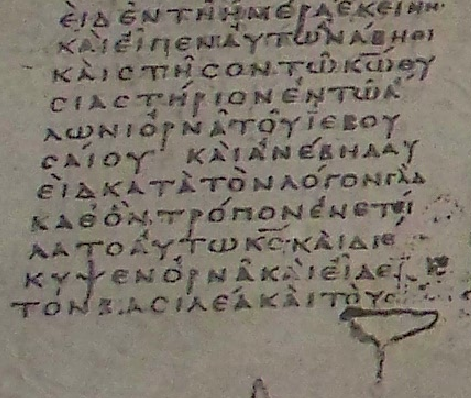 ΕΙΔΕΝΤΗΗΜΕΡΑΕΚΕΙΝΗ
ΚΑΙΕΙΠΕΝΑΥΤΩΝΑΒΗΘΙ
ΚΑΙϹΤΗϹΟΝΤΩΚΩΘΥ
ϹΙΑϹΤΗΡΙΟΝΕΝΤΩΑ
ΛΩΝΙΟΡΝΑΤΟΥΪΕΒΟΥ
ϹΑΙΟΥ ΚΑΙΑΝΕΒΗΔΑΥ
ΕΙΔΚΑΤΑΤΟΝΛΟΓΟΝΓΑΔ
ΚΑΘΟΝΤΡΟΠΟΝΕΝΕΤΕΙ
ΛΑΤΟΑΥΤΩΚϹ·ΚΑΙΔΙΕ
ΚΥΨΕΝΟΡΝΑΚΑΙΕΙΔΕ
ΤΟΝΒΑϹΙΛΕΑΚΑΙΤΟΥϹ